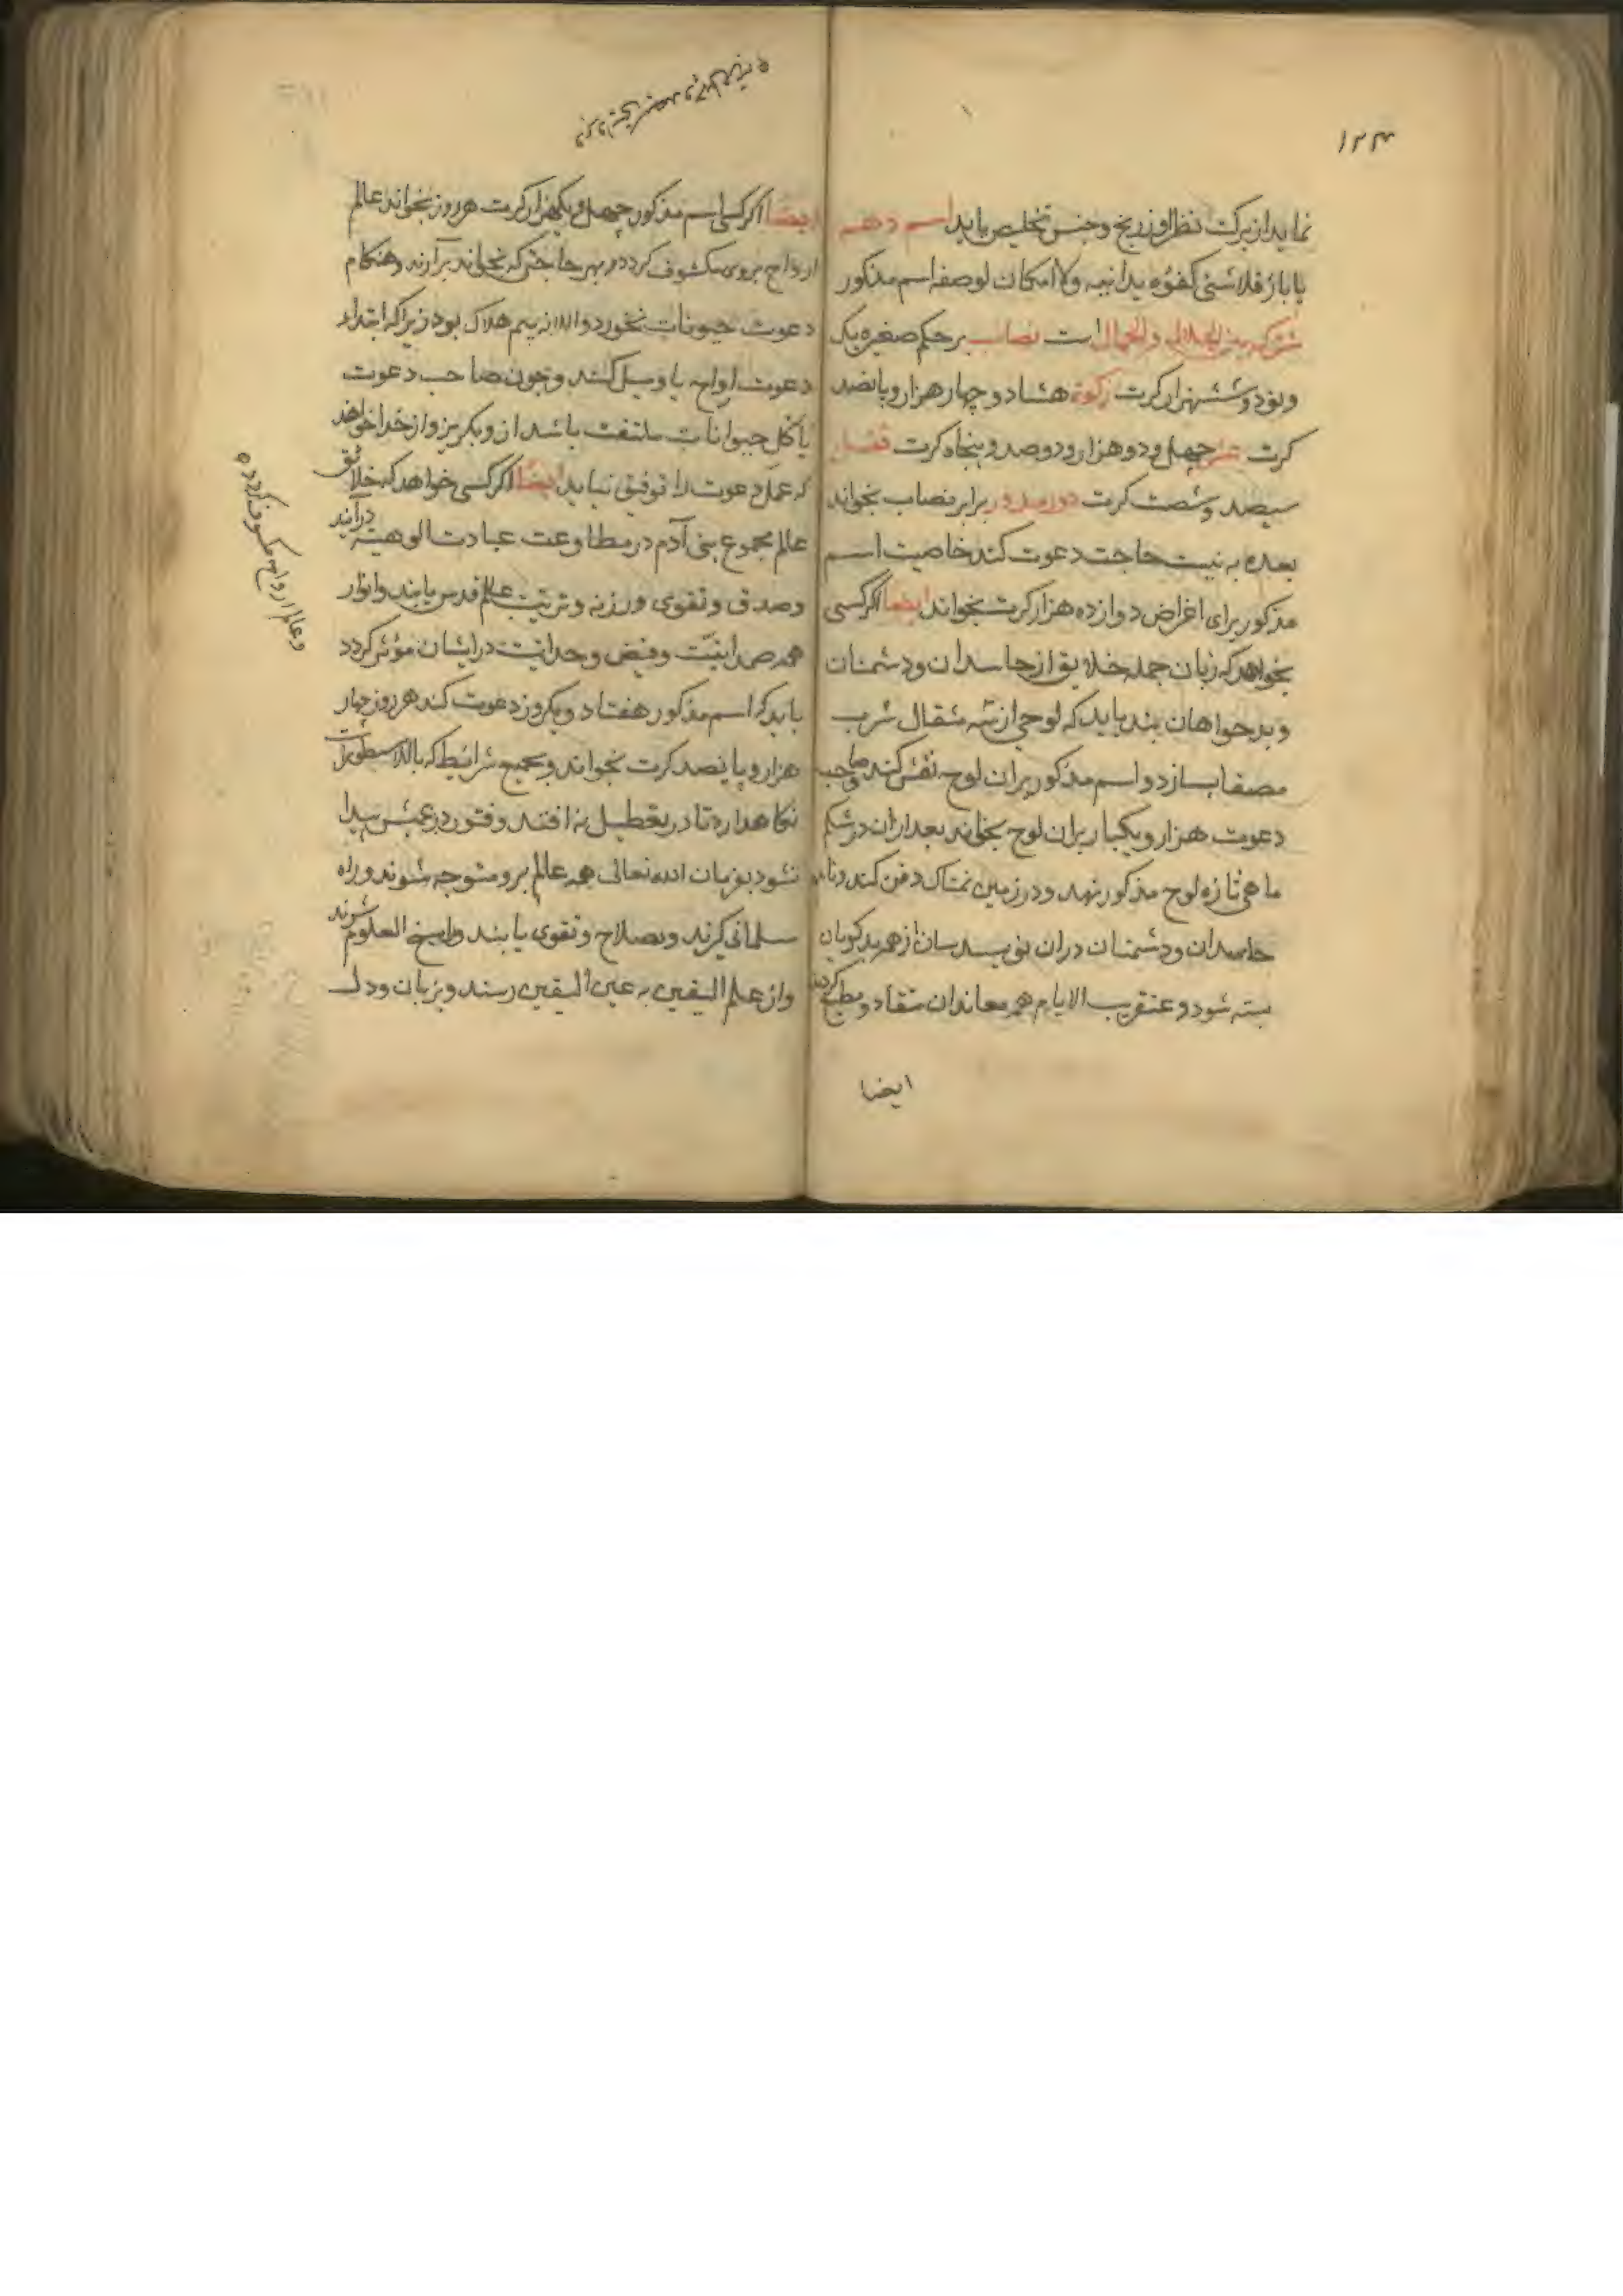 ۱۲۴
نماید از برکت نظر او ز ریخ و جنس تخلیص یابد اسم دهم
یا بار فلا شئی کفوه یدانیه ولا امکان لوصفه اسم مذکور
مشترک بین الجلالی والجمالی است نصاب بر حکم صغیره یک
ونود وششهزار کرت زکوة هشتاد و چهار هزار و پانصد
کرت عشر چهل و دو هزار و دوصد و پنجاه کرت قفل
سیصد وشصت کرت دور مدور برابر نصاب بخواند
بعده به نیت حاجت دعوت کند خاصیت اسم
مذکور برای اغراض دوازده هزار کرت بخواند ایضا اگر کسی
بخواهد که زبان جمله خلایق از حاسدان ودشمنان
وبدخواهان بندد باید که لوحی از سه مثقال سرب
مصفا بسازد و اسم مذکور بران لوح نقش کند صاحب
دعوت هزار ویکبار بران لوح بخواند بعد ازان در شکم
ماهی تازه لوح مذکور نهد ودر زمین نمناک دفن کند ونام
حاسدان ودشمنان دران نویسد لسان از همه بدکویان
بسته شود و عنقریب الایام همه معاندان منقاد ومطیع کردند
ایضا
ایضا اکر کسی اسم مذکور چهل ویکهزار کرت هر روز بخواند عالم
ارواح بروی مکشوف کردد و بهر حاجتی که بخواند برآرند وهنکام
دعوت حیوانات نخورد والا نه بیم هلاک بود زیرا که ابتداء
دعوت ارواح یا وسیل کنند وچون صاحب دعوت
باکل حیوانات ملتفت باشد ازو بکریزند و از خدا خواهند
که عمل دعوت را توفیق نیابد ایضا اکر کسی خواهد که خلائق
عالم مجموع بنی آدم در مطاوعت عبادت الوهیته درآیند
وصدق وتقوی ورزند وتربیت عالم قدس یابند وانوار
همه صمدانیت وفیض وحدانیت در ایشان مؤثر کردد
باید که اسم مذکور هفتاد ویکروز دعوت کند هر روز چهار
هزار و پانصد کرت بخواند وجمیع شرائط که بالا مسطور است
نکاهدارد تا در تعطیل نه افتد وفتور در عیش پیدا
نشود بفرمان الله تعالی همه عالم برو متوجه شوند وراه
سلمانی کیرند وبصلاح وتقوی یابند وراسخ العلوم شوند
واز علم الیقین به عین الیقین رسند وبزبان ودل
وعالم ارواح مکشوف کردد